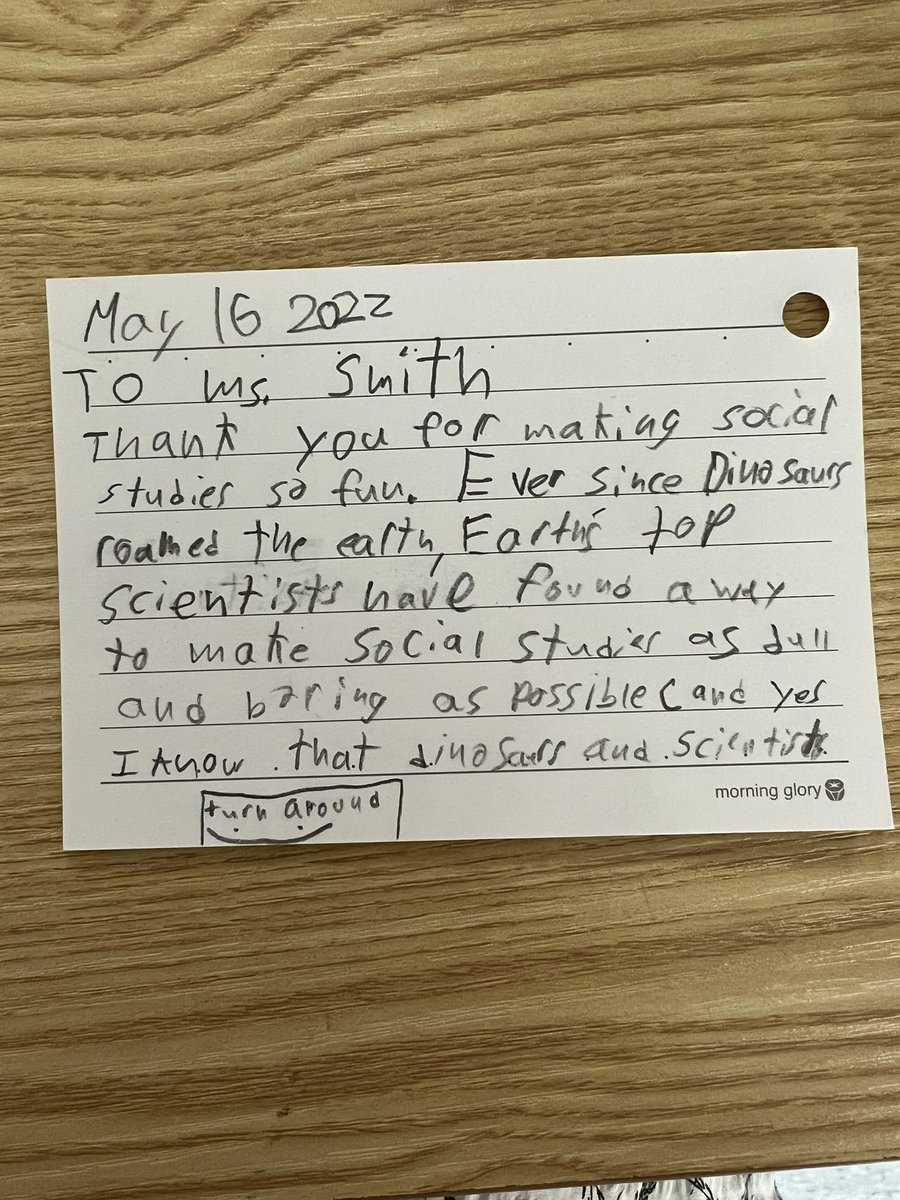 May 16 2022
To Ms. Smith
Thank you for making social
studies so fun. Ever since Dinosaurs
roamed the earth, Earth's top
scientists have found a way
to make social studies as dull
and boring as possible (and yes
I know that dinosaurs and scientists
morning glory
turn around